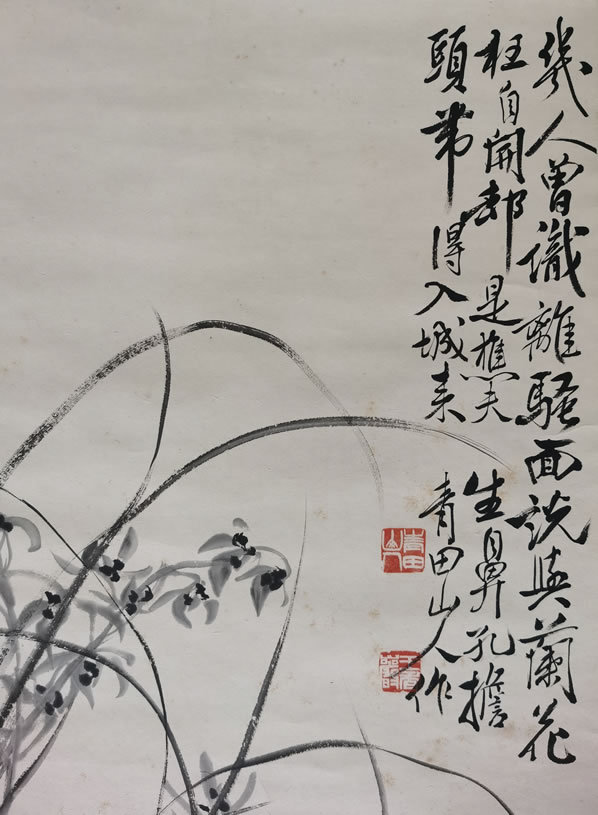 幾人曾識離騷面説與蘭花
枉自開却是樵夫生鼻孔擔
頭帶得入城来
青田山人作